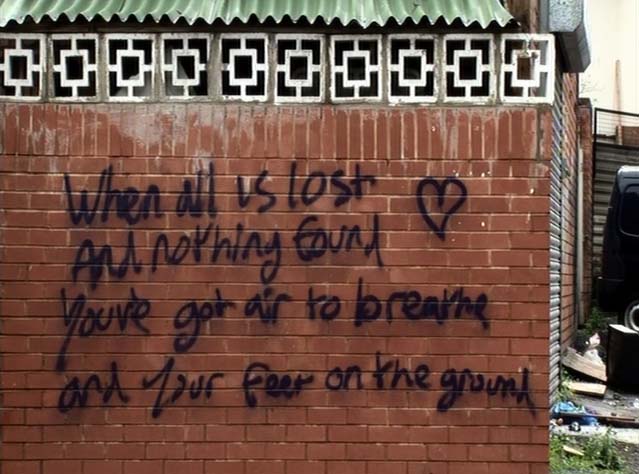 When all is lost
And nothing found
You've got air to breathe
and your feet on the ground